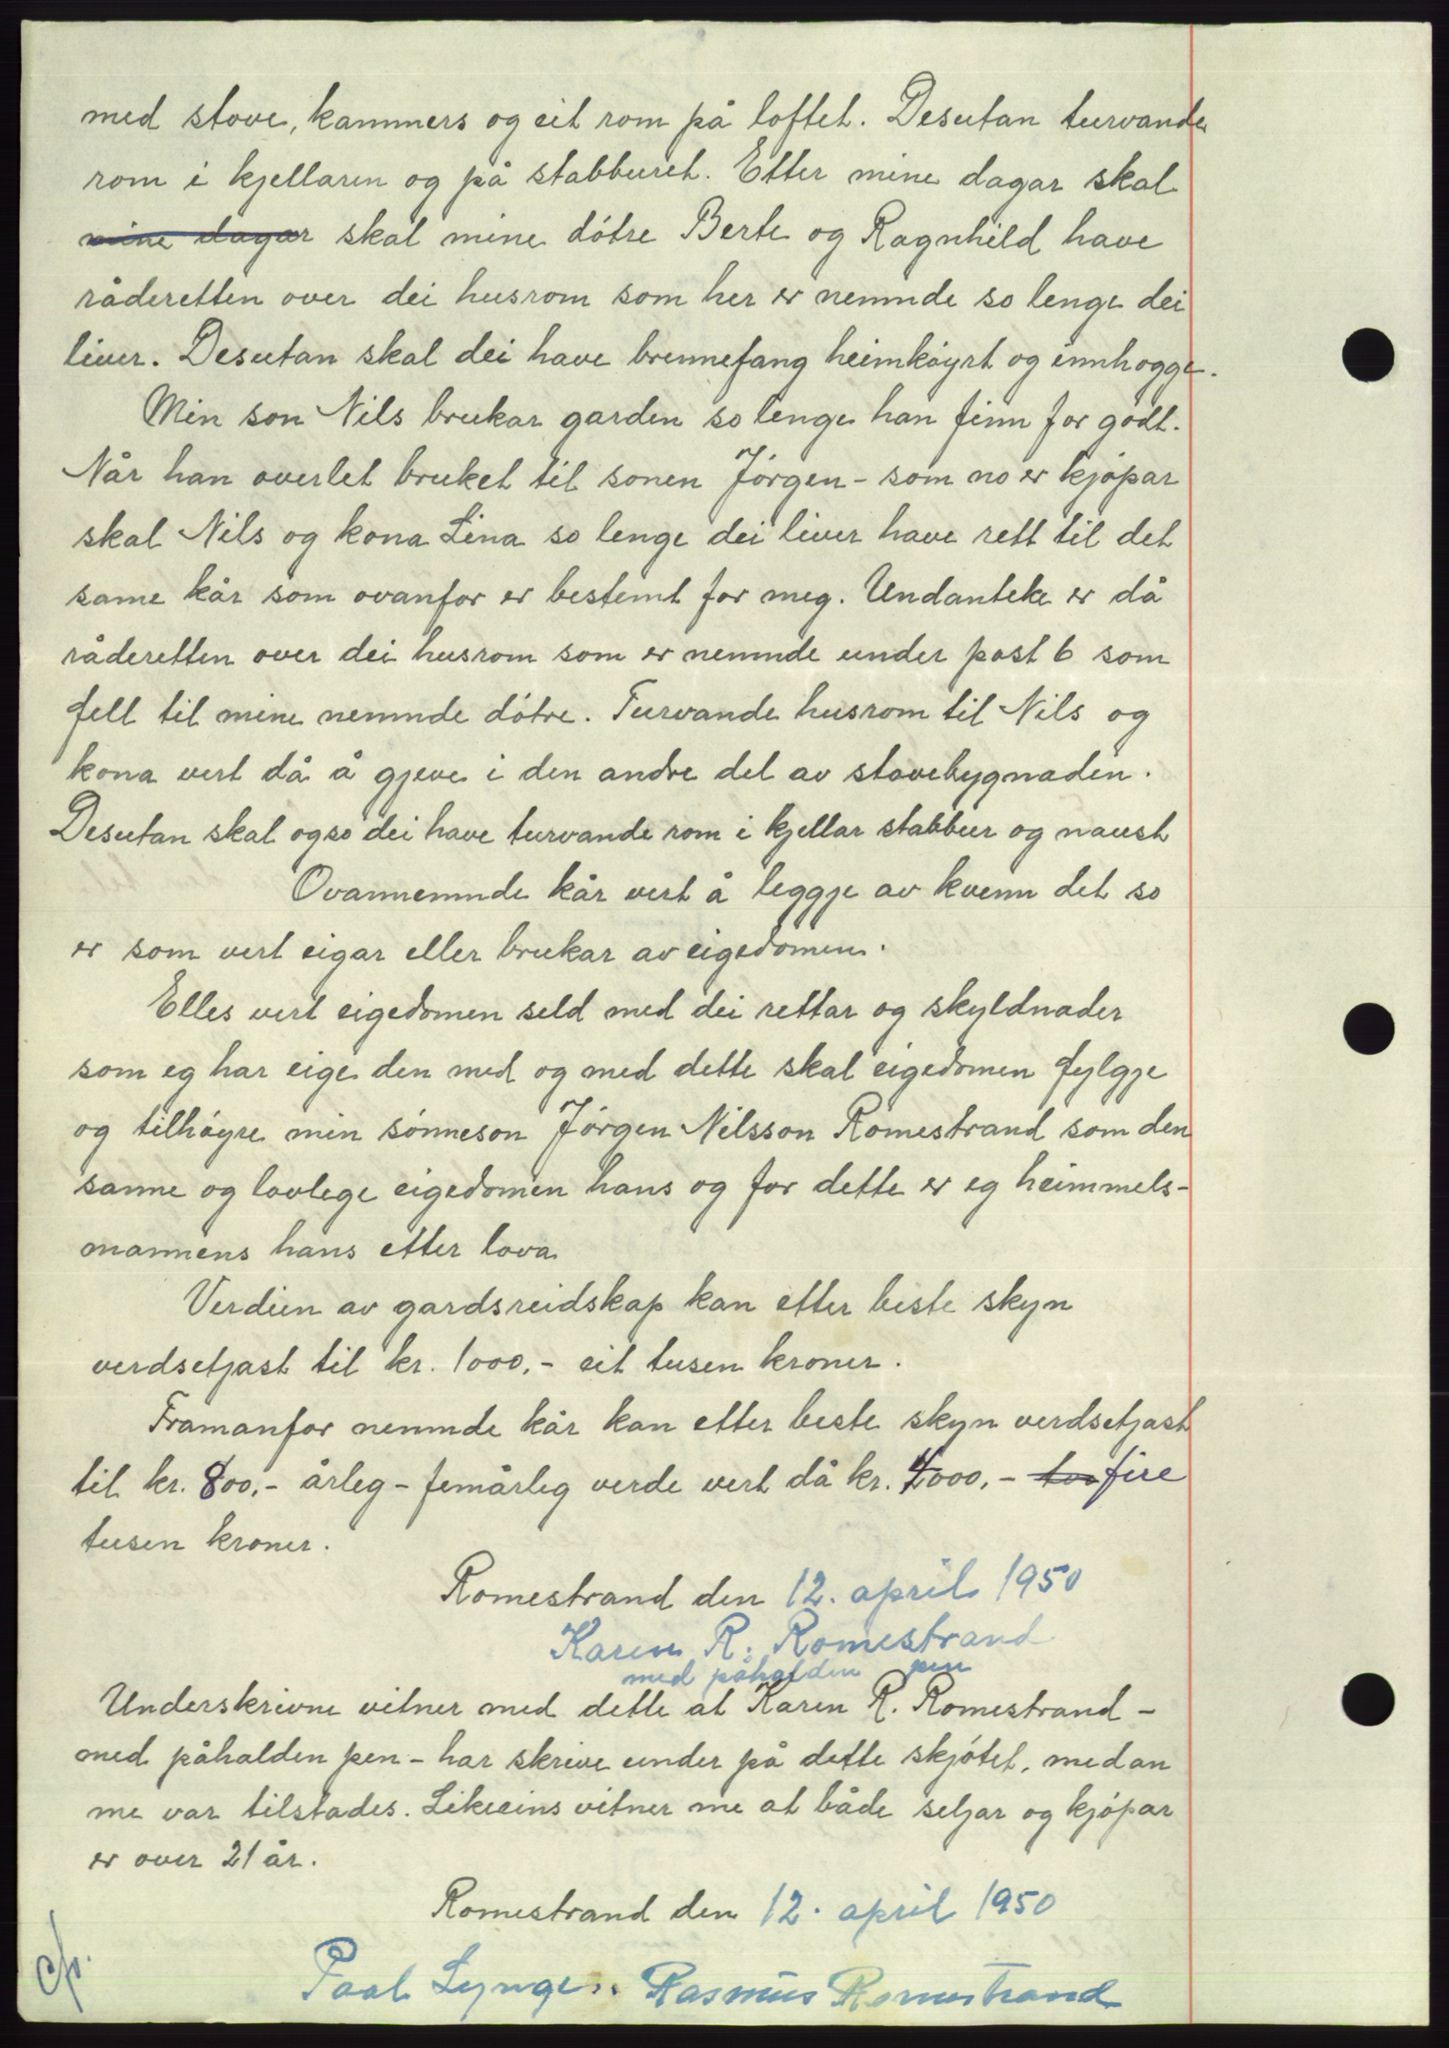 med stove, kammers og eit rom på loftet. Desutan turvande
rom i kjellaren og på stabburet. Etter mine dagar skal
mine dagar skal mine dótre Berte og Ragnhild have
råderetten over dei husrom som her er nemnde so lenge dei
liver. Desutan skal dei have brennefang heimkóyrt og innhogge.
Min son Nils brukar garden so lenge han finn for godt.
Når han overlet bruket til sonen Jórgen - som no er kjópar
skal Nils og kona Lina so lenge dei liver have rett til det
same kår som ovanfor er bestemt for meg. Undanteke er då
råderetten over dei husrom som er nemnde under post 6 som
fell til mine nemnde dótre. Turvande husrom til Nils og
kona vert då å gjeve i den andre del av stovebygnaden.
Desutan skal ogso dei have turvande rom i kjellar stabbur og naust
Ovannemnde kår vert å leggje av kvenn det so
er som vert eigar eller brukar av eigedomen.
Elles vert eigedomen seld med dei rettar og skyldnader
som eg har eige den med og med dette skal eigedomen fylgje
og tilhóyre min sónneson Jórgen Nilsson Romestrand som den
sanne og lovlege eigedomen hans og for dette er eg heimmels-
mannens hans etter lova
Verdien av gardsreidskap kan etter beste skyn
verdsetjast til kr. 1000,- eit tusen kroner.
Framanfor nemnde kår kan etter beste skyn verdsetjast
til kr. 800,- årleg - femårleg verde vert då kr. 4000,- to fire
tusen kroner.
Romestrand den 12. april 1950
Karen R. Romestrand
med påhalden pen
Underskrivne vitner med dette at Karen R. Romestrand -
med påhalden pen - har skrive under på dette skjótet, medan
me var tilstades. Likeeins vitner me at både seljar og kjópar
er over 21 år.
Romestrand den 12. april 1950
Paal Lynge. Rasmus Romestrand